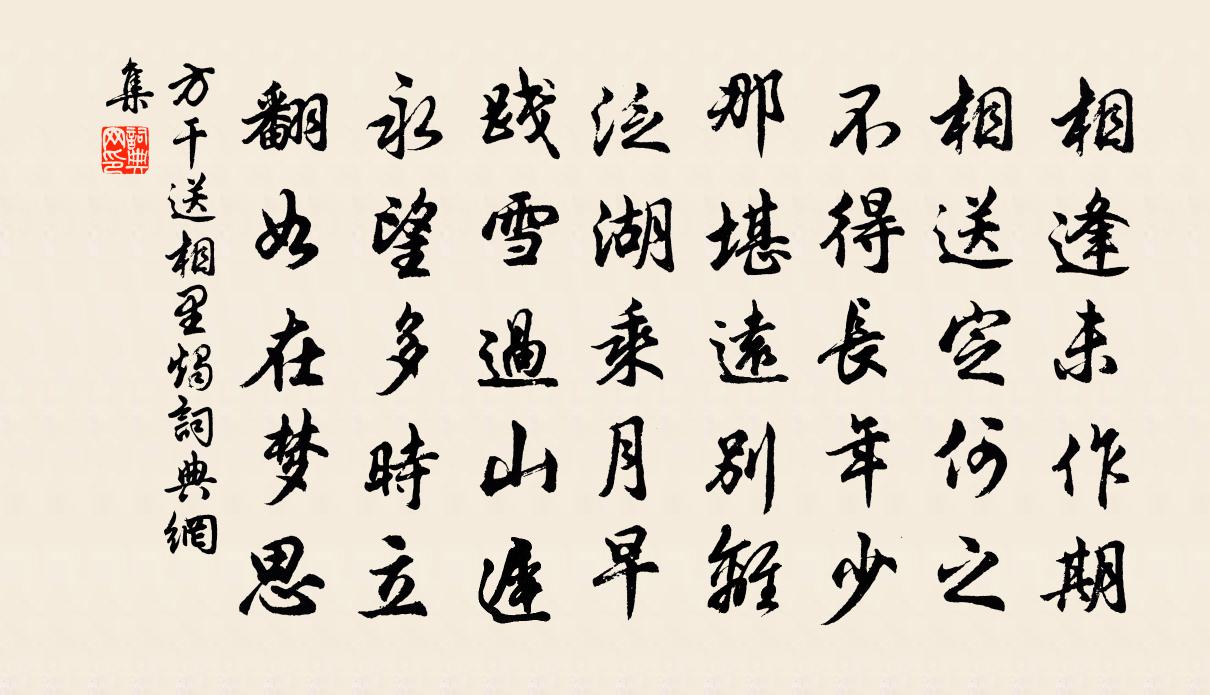 相逢未作期
相送定何之
不得長年少
那堪遠別離
泛湖乘月早
践雪過山遲
永望多時立
翻如在梦思
方干送相里燭詞典網
集
詞典
网印